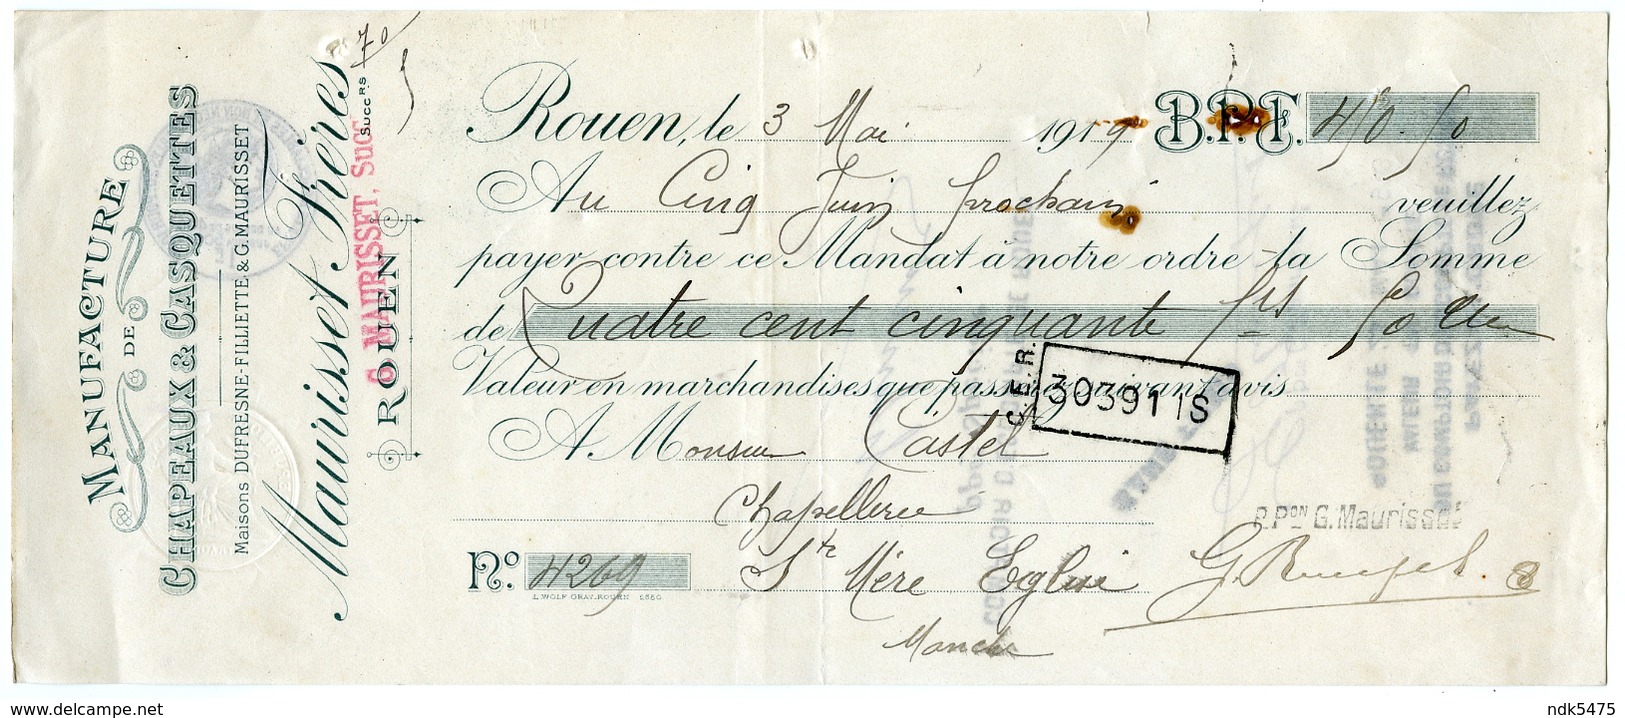 MANUFACTURE
DE
CHAPEAUX & CASQUETTES
Maisons DUFRESNE-FILLIETTE & G. MAURISSET
Maurisset Frères
Succrs
G. MAURISSET, Succ
ROUEN
70
Rouen, le 3 Mai 1919 B.P.F. 450.50
Au Cinq Juin prochain veuillez
payer contre ce Mandat à notre ordre la Somme
de Quatre cent cinquante frs 50 cen
Valeur en marchandises que passerez suivant avis
C.E.R.
303911S
A Monsieur Castel
Chapellerie
P. Pon G. Maurisset
No. 4269 Ste Mère Eglise
L. WOLF GRAV. ROUEN
Manche
www.delcampe.net
ndk5475